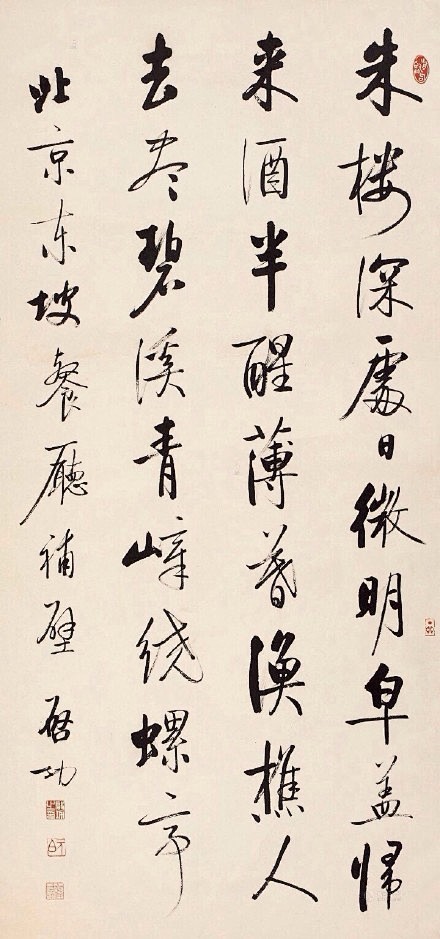 朱楼深處日微明皁盖帰
来酒半醒薄暮漁樵人
去尽碧溪青嶂绕螺亭
北京东坡餐廳補壁 启功